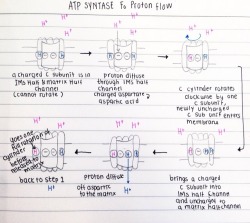 ATP SYNTASE Fo Proton flow
H+
H+
H+
H+
H+
H+
a charged C subunit is in
IMS Half & matrix Half
Channel
(cannot rotate)
proton diffuse
through IMS half
Channel
charged aspartate →
aspartic acid
C cylinder rotates
clockwise by one
C subunit,
newly uncharged
C sub unit enters
membrane
H+
H+
H+
H+
H+
H+
back to step 1
proton diffuse
off aspartic
to the matrix
H+
brings a charged
C subunit into
IMS half Channel
and uncharged to
a matrix half channel